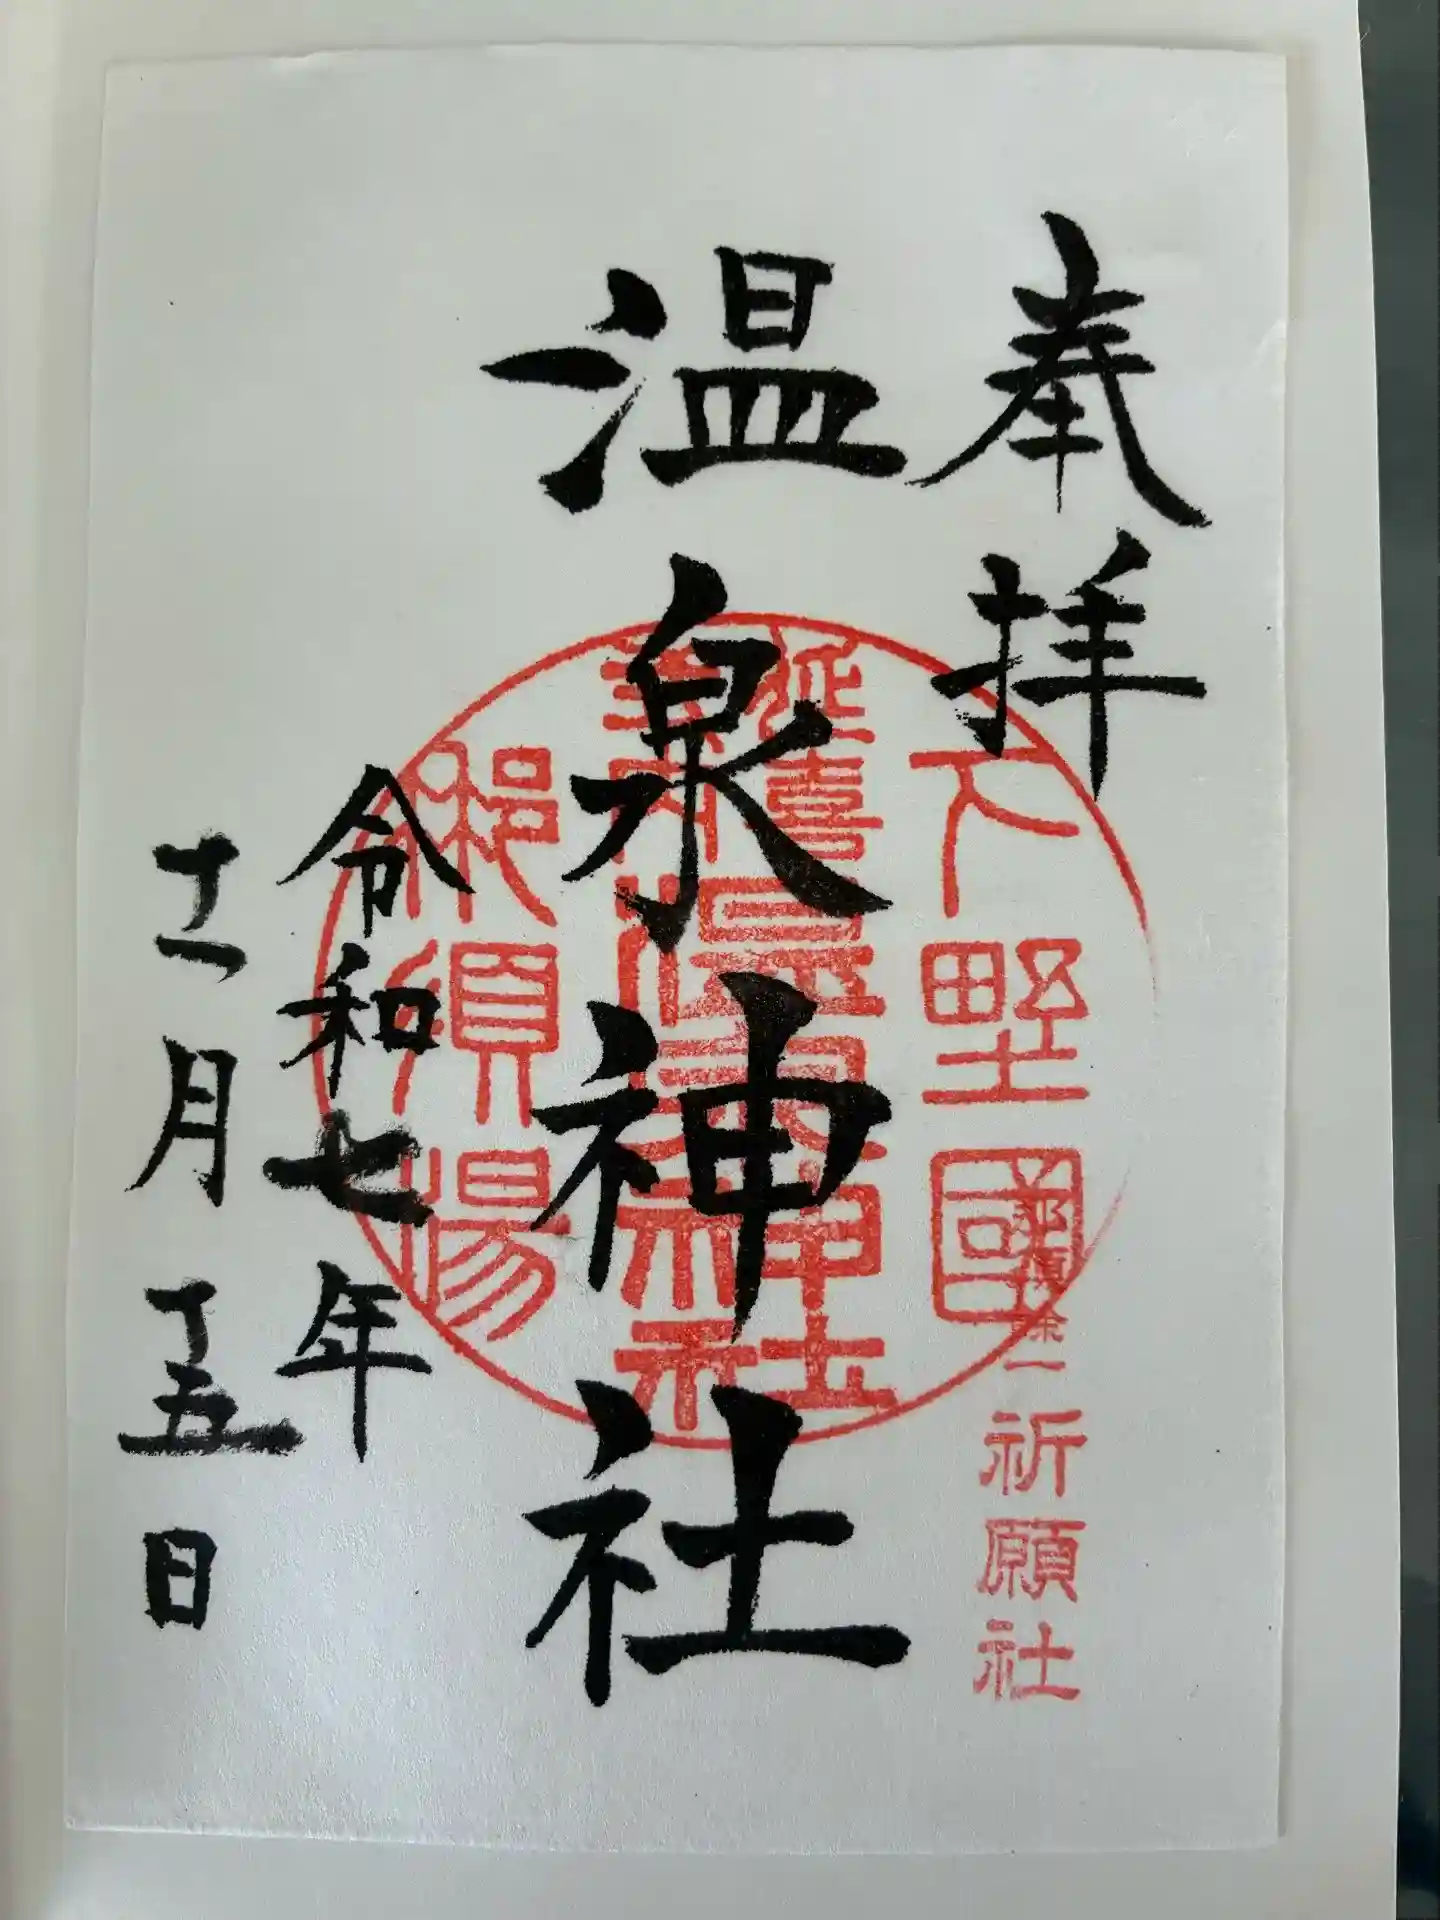 奉拝
下野國
那須餘一祈願社
延喜式内温泉神社
温泉神社
那須湯
令和七年
十一月十五日